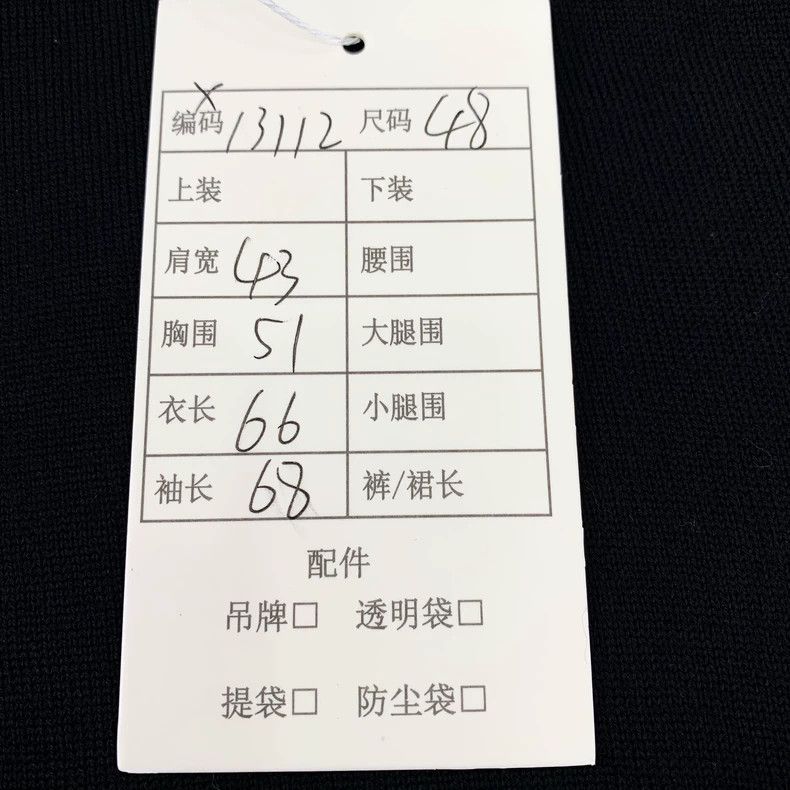 X
编码 13112 尺码 48
上装 下装
肩宽 43 腰围
胸围 51 大腿围
衣长 66 小腿围
袖长 68 裤/裙长
配件
吊牌□ 透明袋□
提袋□ 防尘袋□